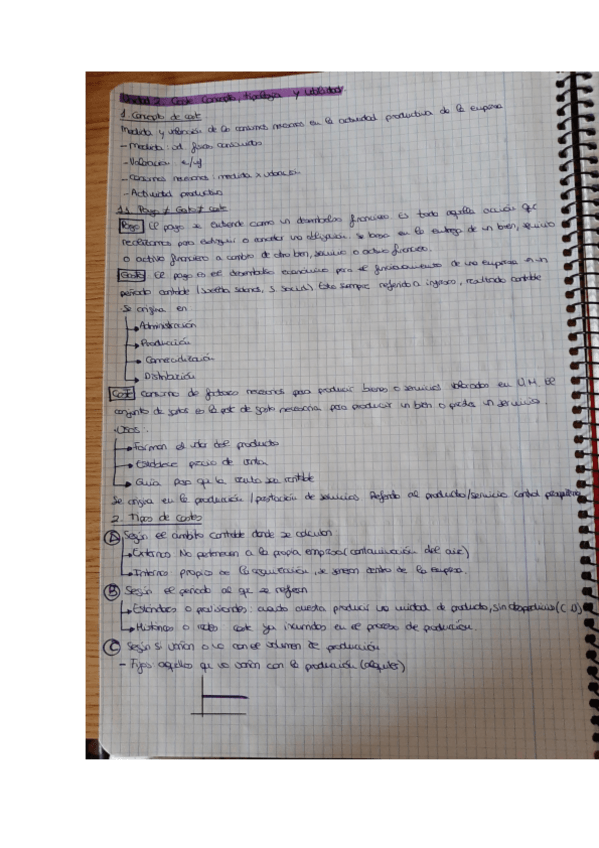 Unidad 2. Coste: Concepto, tipología y utilidad.
1. Concepto de coste
Medida y valoración de los consumos necesarios en la actividad productiva de la empresa
- Medida: ud físicas consumidas
- Valoración: €/ud
- Consumos necesarios: medida x valoración
- Actividad productiva
1.1. Pago ≠ Gasto ≠ coste
Pago El pago se entiende como un desembolso financiero. Es toda aquella acción que
realizamos para extinguir o cancelar una obligación. Se basa en la entrega de un bien, servicio
o activo financiero a cambio de otro bien, servicio o activo financiero.
Gasto El pago es el desembolso económico para el funcionamiento de una empresa en un
periodo contable (sueldos salarios, S. Social) Esta siempre referido a ingresos, resultado contable
Se origina en
Administración
Producción
Comercialización
Distribución
Coste Consumo de factores necesarios para producir bienes o servicios valorados en U.M. El
conjunto de costes es la parte de gasto necesaria para producir un bien o prestar un servicio.
· Usos:
Forman el valor del producto
Establecer precio de venta
Guía para que la venta sea rentible
Se origina en la producción / prestación de servicios Referido al producto/servicio control
2. Tipos de costes
A Según el ámbito contable donde se calculan
Externos No pertenecen a la propia empresa (contaminación del aire)
Internos propios de la organización, se generan dentro de la empresa.
B Según el periodo al que se refieren
Estandares o previsionales: cuanto cuesta producir una unidad de producto, sin desperdicios (C.D)
Históricos o reales coste ya incurridos en el proceso de producción.
C Según si varían o no con el volumen de producción
- Fijos aquellos que no varían con la producción (alquiler)